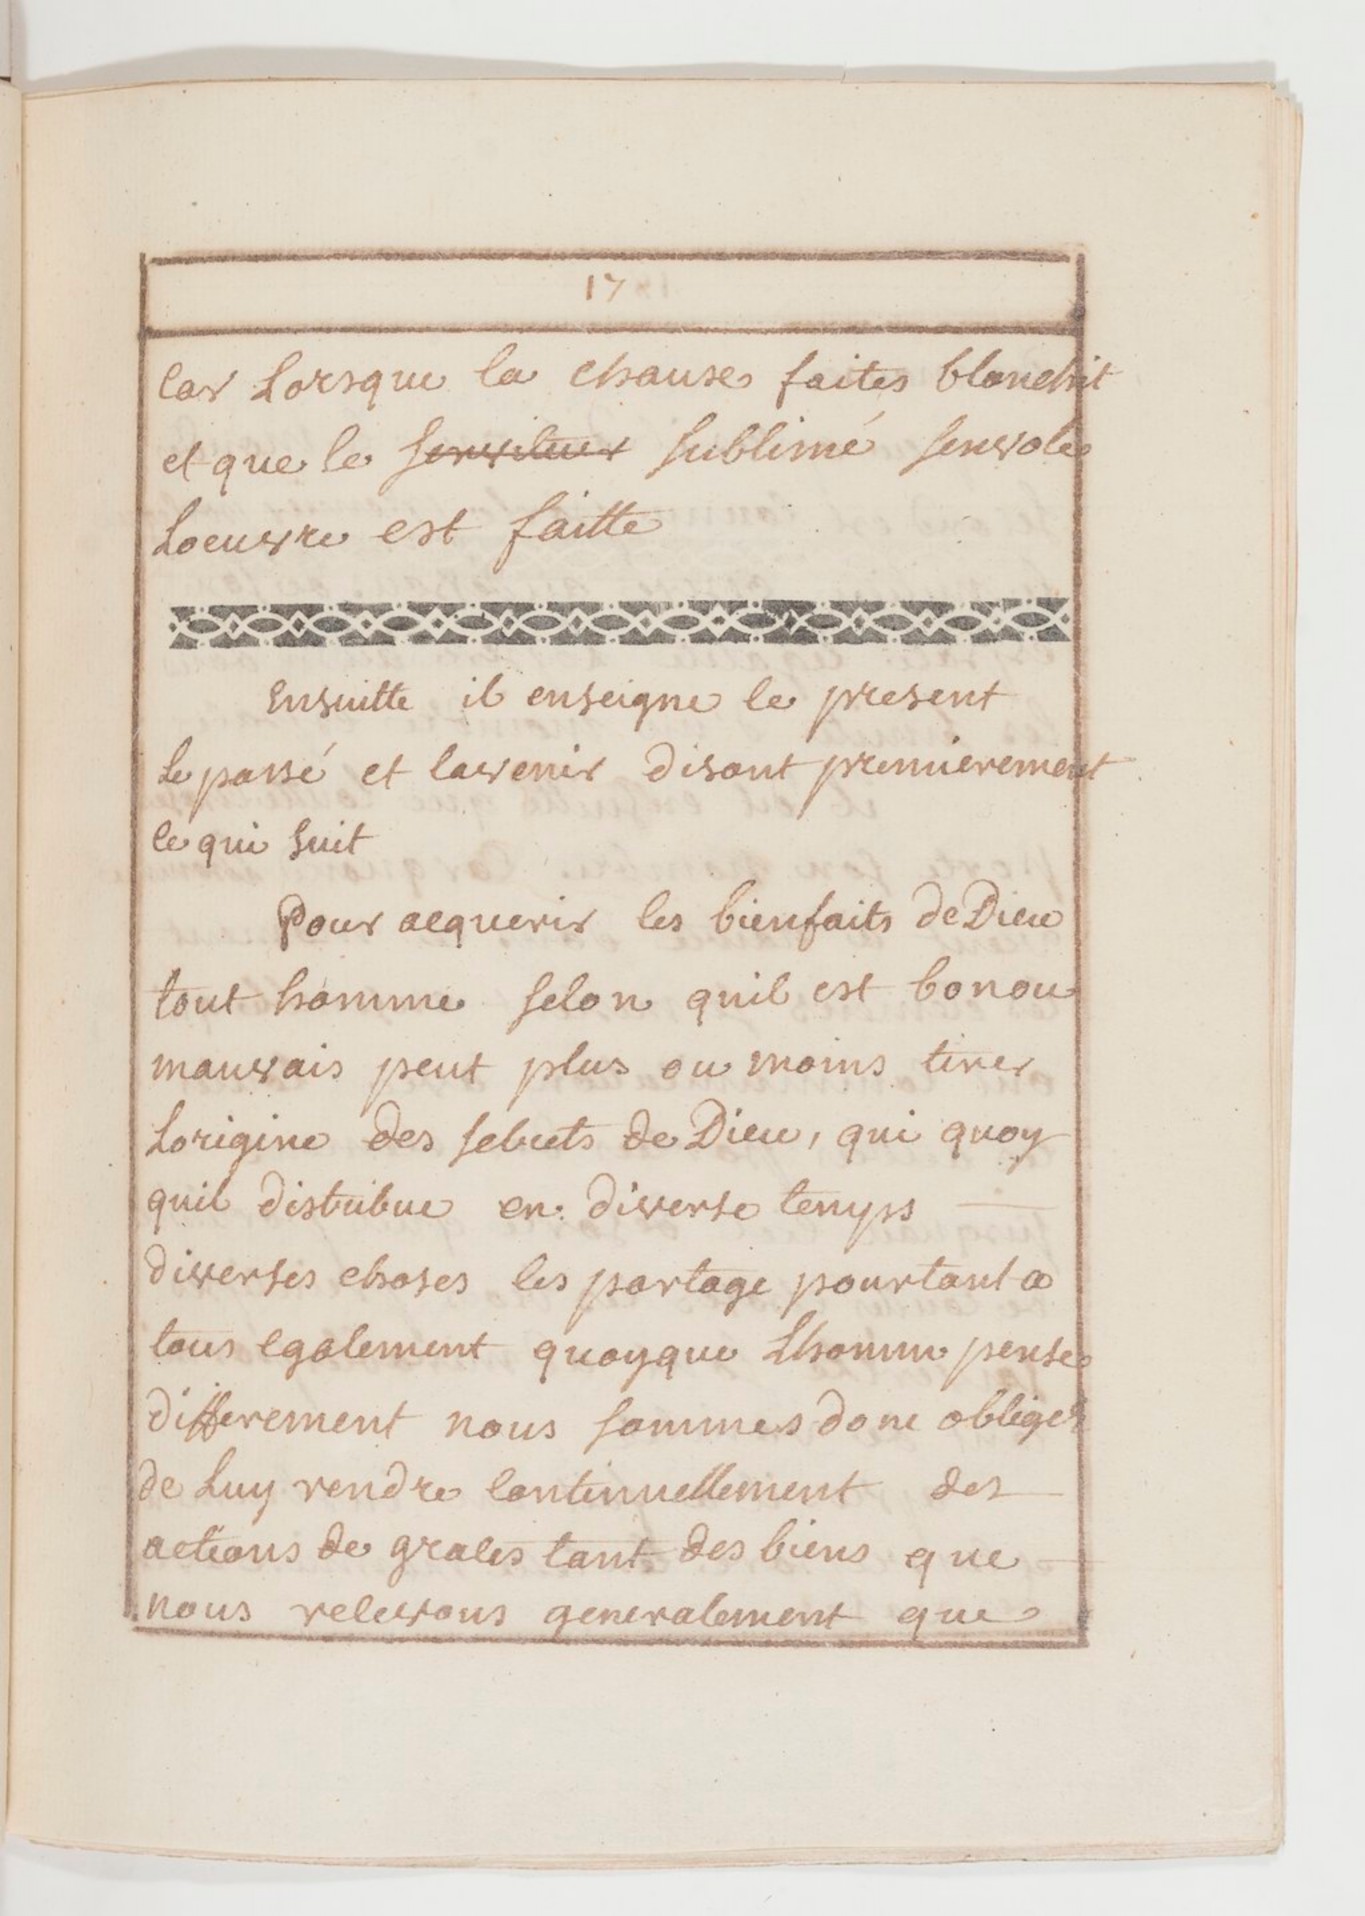 17
Car Lorsque la chause faites blanchit
et que le serviteur sublimé senvole
Loeuvre est faitte
Ensuitte il enseigne le present
Le passé et lavenir disant premierement
ce qui suit
Pour acquerir les bienfaits de Dieu
tout homme selon quil est bon ou
mauvais peut plus ou moins tirer
Lorigine des secrets de Dieu, qui quoy
quil distribue en diverse temps
diverses choses les partage pourtant a
tous egalement quoyque Lhomme pense
differement nous sommes donc obliges
de Luy rendre continuellement des
actions de graces tant des biens que
nous recevons generalement que